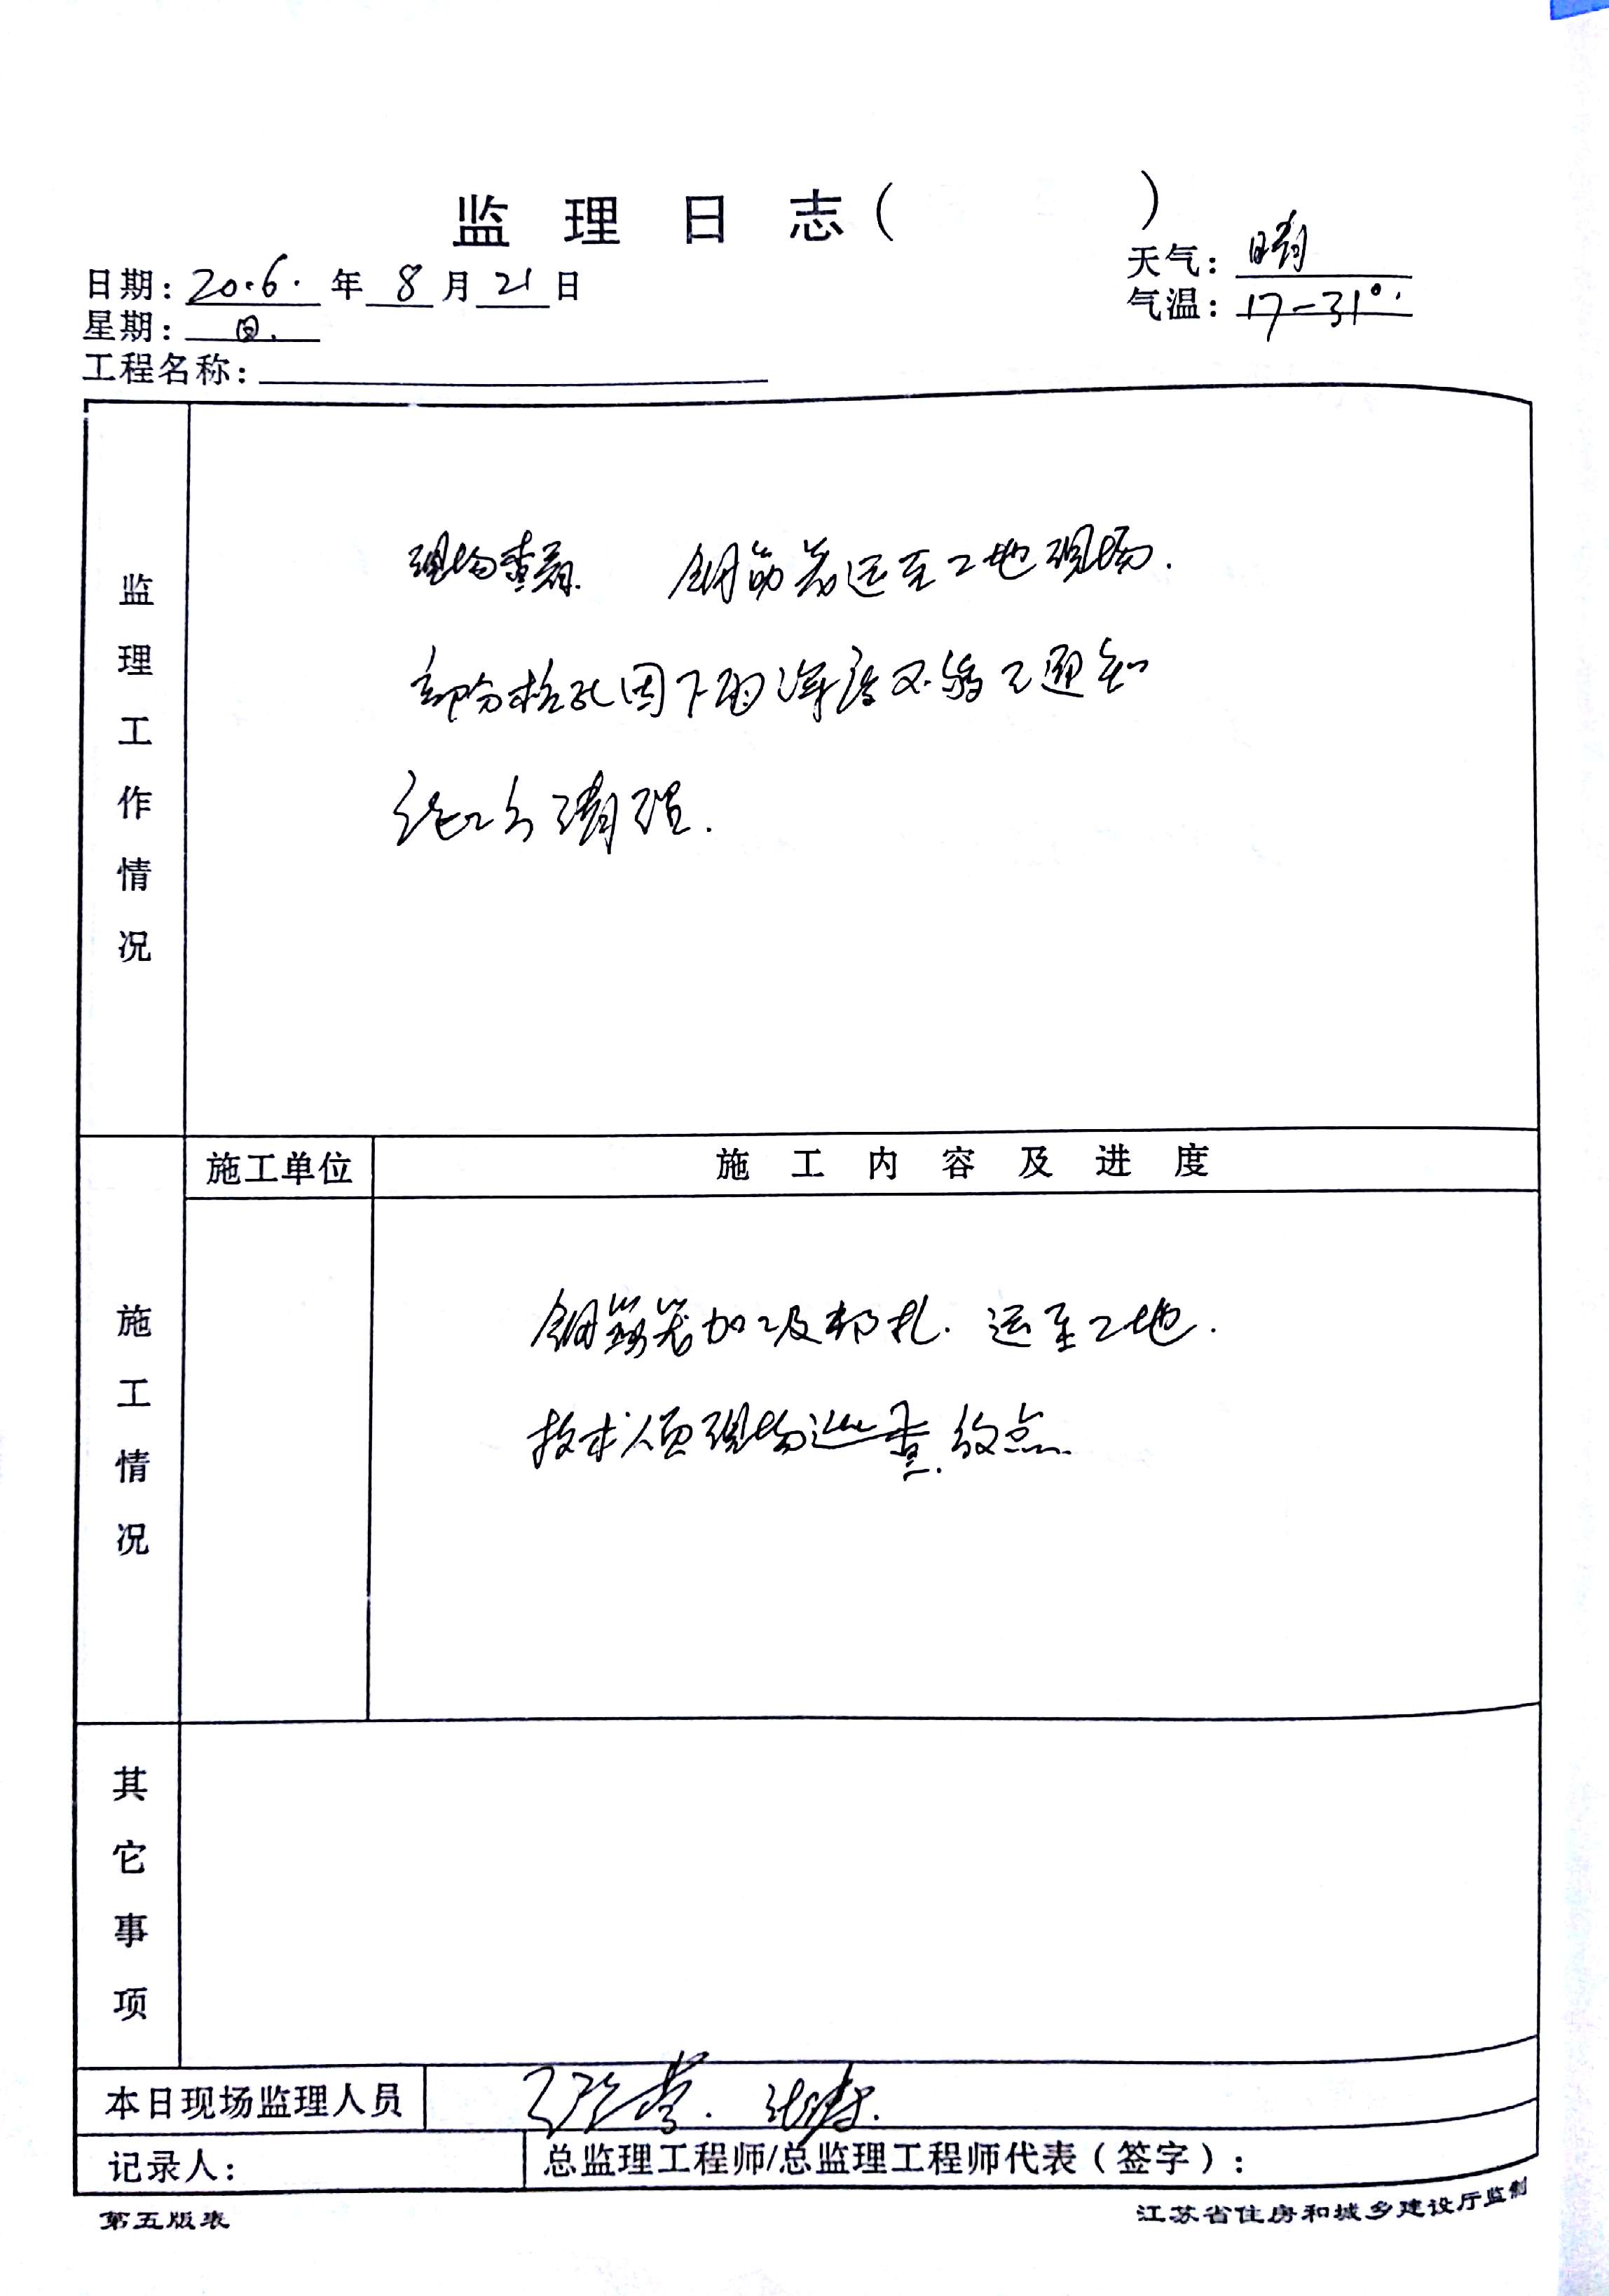 监 理 日 志 ( )
日期: 20.6. 年 8 月 21 日
天气: 晴
星期: 日.
气温: 17-31°.
工程名称:
监理工作情况
现场查看. 钢筋笼运至工地现场.
部分桩孔因下雨深度不够已通知
施工方清理.
施工单位
施 工 内 容 及 进 度
施工情况
钢筋笼加工及邦扎. 运至工地.
技术人员现场巡查. 放点.
其它事项
本日现场监理人员
记录人:
总监理工程师/总监理工程师代表(签字):
第五版表
江苏省住房和城乡建设厅监制